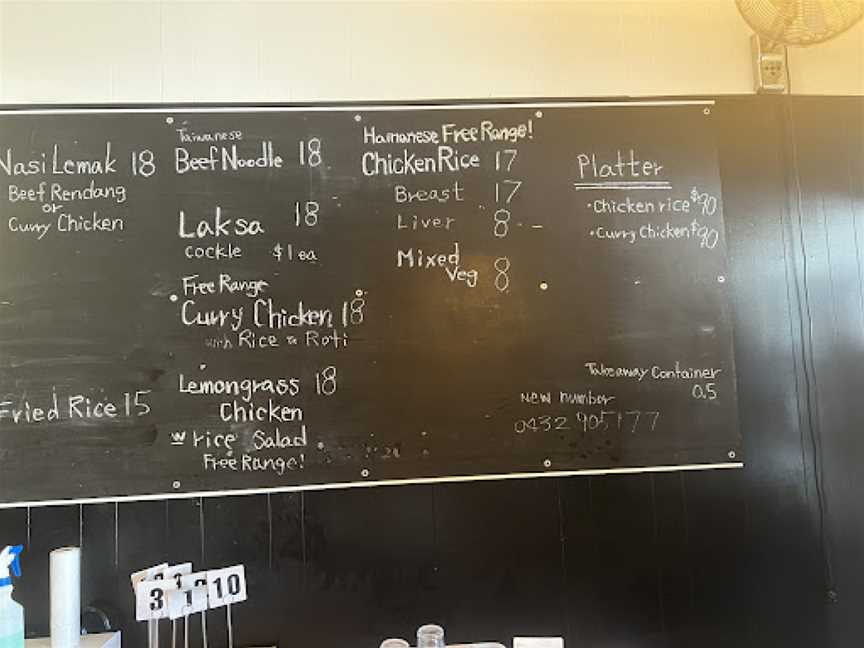 Nasi Lemak 18
Beef Rendang
or
Curry Chicken
Fried Rice 15
Taiwanese
Beef Noodle 18
Laksa 18
cockle $1 ea
Free Range
Curry Chicken 18
with Rice & Roti
Lemongrass 18
Chicken
w rice Salad
Free Range!
Hainanese Free Range!
Chicken Rice 17
Breast 17
Liver 8
Mixed
Veg 8
Platter
• Chicken rice $90
• Curry Chicken $90
Takeaway Container
0.5
New number
0432 905177
3
1
10